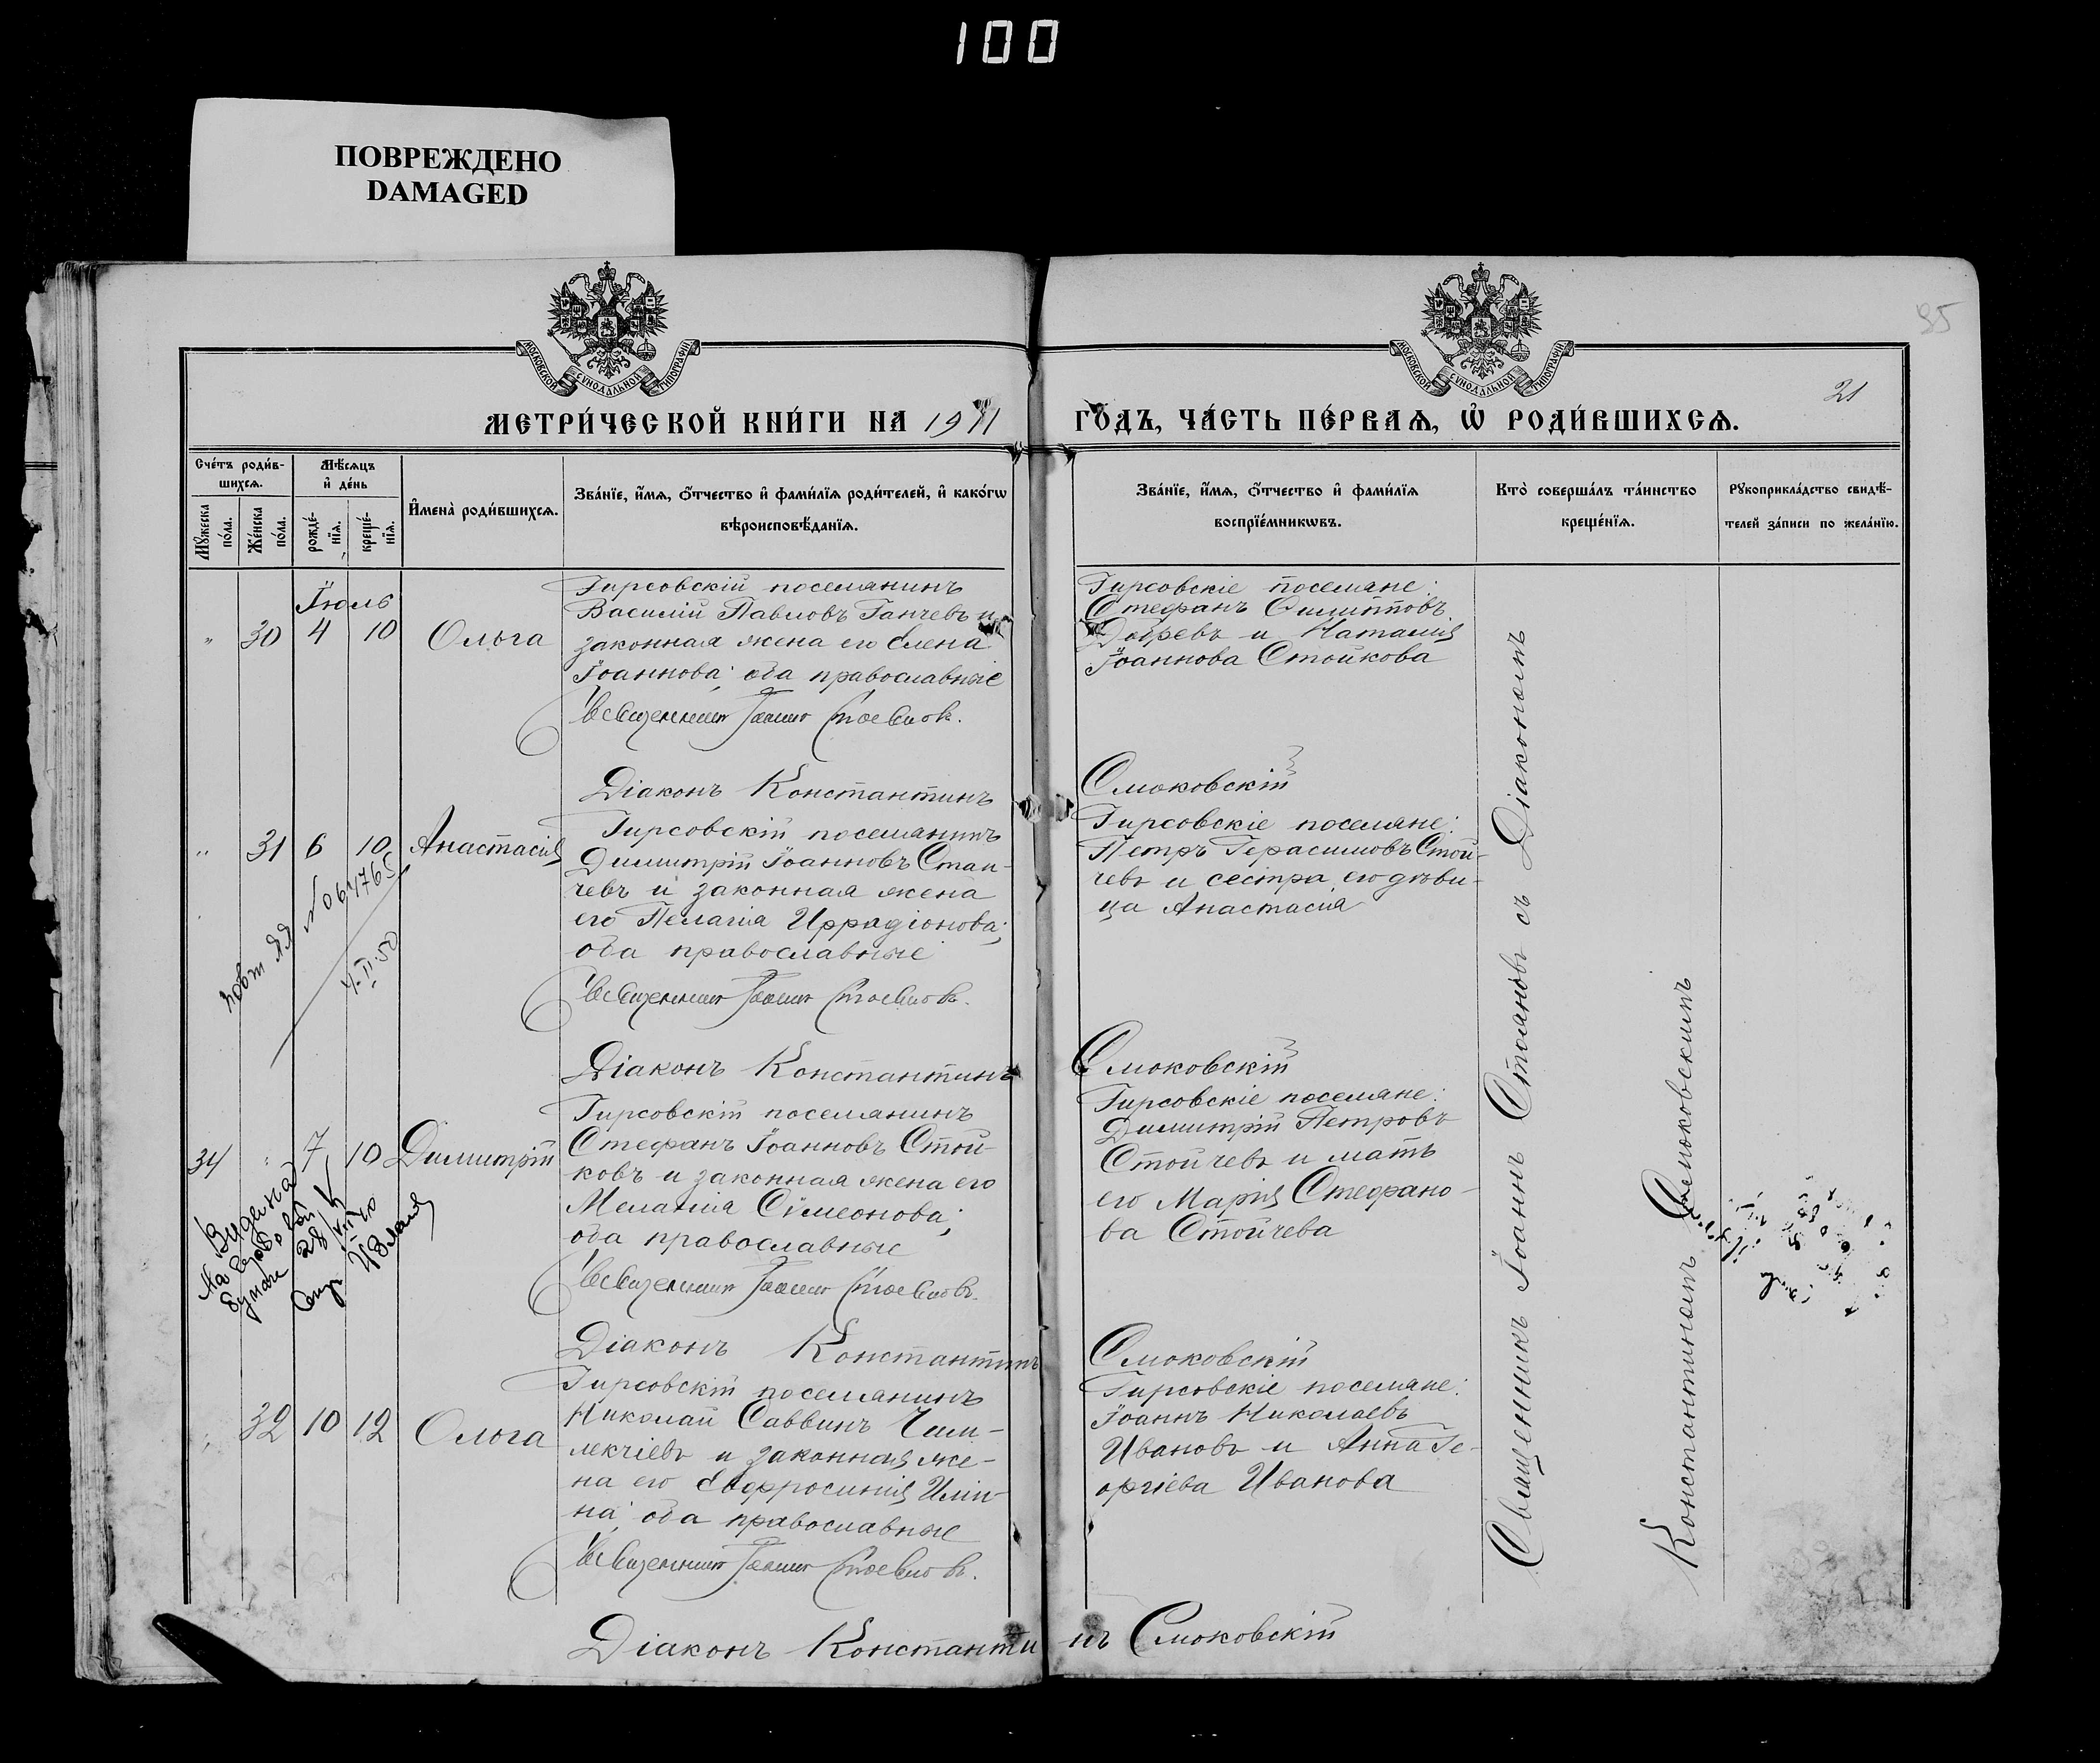 100
ПОВРЕЖДЕНО
DAMAGED
МОСКОВСКОЙ СѴНОДАЛЬНОЙ ТИПОГРАФІИ
МОСКОВСКОЙ СѴНОДАЛЬНОЙ ТИПОГРАФІИ
35
21
МЕТРИ́ЧЕСКОЙ КНИ́ГИ НА 1911
ГО́ДЪ, ЧА́СТЬ ПЕ́РВАѦ, Ѡ҆ РОДИ́ВШИХСѦ.
Сче́тъ роди́в-
шихсѧ.
Мꙋ́жеска
по́ла.
Же́нска
по́ла.
Мѣ́сѧцъ
и҆ де́нь
рожде́-
нїѧ.
креще́-
нїѧ.
И҆мена̀ роди́вшихсѧ.
Зва́нїе, и҆́мѧ, ѻ҆́тчество и҆ фами́лїѧ роди́телей, и҆ како́гѡ
вѣроисповѣ́данїѧ.
Зва́нїе, и҆́мѧ, ѻ҆́тчество и҆ фами́лїѧ
воспрїе́мникѡвъ.
Кто̀ соверша́лъ та́инство
креще́нїѧ.
Рꙋкоприкла́дство свидѣ́-
телей за́писи по жела́нїю.
Іюль
" 30 4 10 Ольга
Гирсовскій поселянинъ
Василій Павловъ Ганчевъ и
законная жена его Елена
Іоаннова; оба православные
Священникъ Іоаннъ Стояновъ.
Діаконъ Константинъ
Гирсовскіе поселяне:
Стефанъ Филипповъ
Добревъ и Наталія
Іоаннова Стойкова
Смоковскій
" 31 6 10 Анастасія
Гирсовскій поселянинъ
Димитрій Іоанновъ Стан-
чевъ и законная жена
его Пелагія Иррадіонова;
оба православные
Священникъ Іоаннъ Стояновъ.
Діаконъ Константинъ
Гирсовскіе поселяне:
Петръ Герасимовъ Стой-
чевъ и сестра его дѣви-
ца Анастасія
Смоковскій
повт ЯЯ № 064765
4.II.50
34 " 7 10 Димитрій
Гирсовскій поселянинъ
Стефанъ Іоанновъ Стой-
ковъ и законная жена его
Мелания Сѵмеонова;
оба православные
Священникъ Іоаннъ Стояновъ.
Діаконъ Константинъ
Гирсовскіе поселяне:
Димитрій Петровъ
Стойчевъ и мать
его Марія Стефано-
ва Стойчева
Смоковскій
Выдана
на
бумаги 28
40
" 32 10 12 Ольга
Гирсовскій поселянинъ
Николай Саввинъ Чим-
лекчіевъ и законная же-
на его Евфросинія Иліи-
на; оба православные
Священникъ Іоаннъ Стояновъ.
Діаконъ Константинъ Смоковскій
Гирсовскіе поселяне:
Іоаннъ Николаевъ
Ивановъ и Анна Ге-
оргіева Иванова
Священникъ Іоаннъ Стояновъ съ Діакономъ
Константиномъ Смоковскимъ